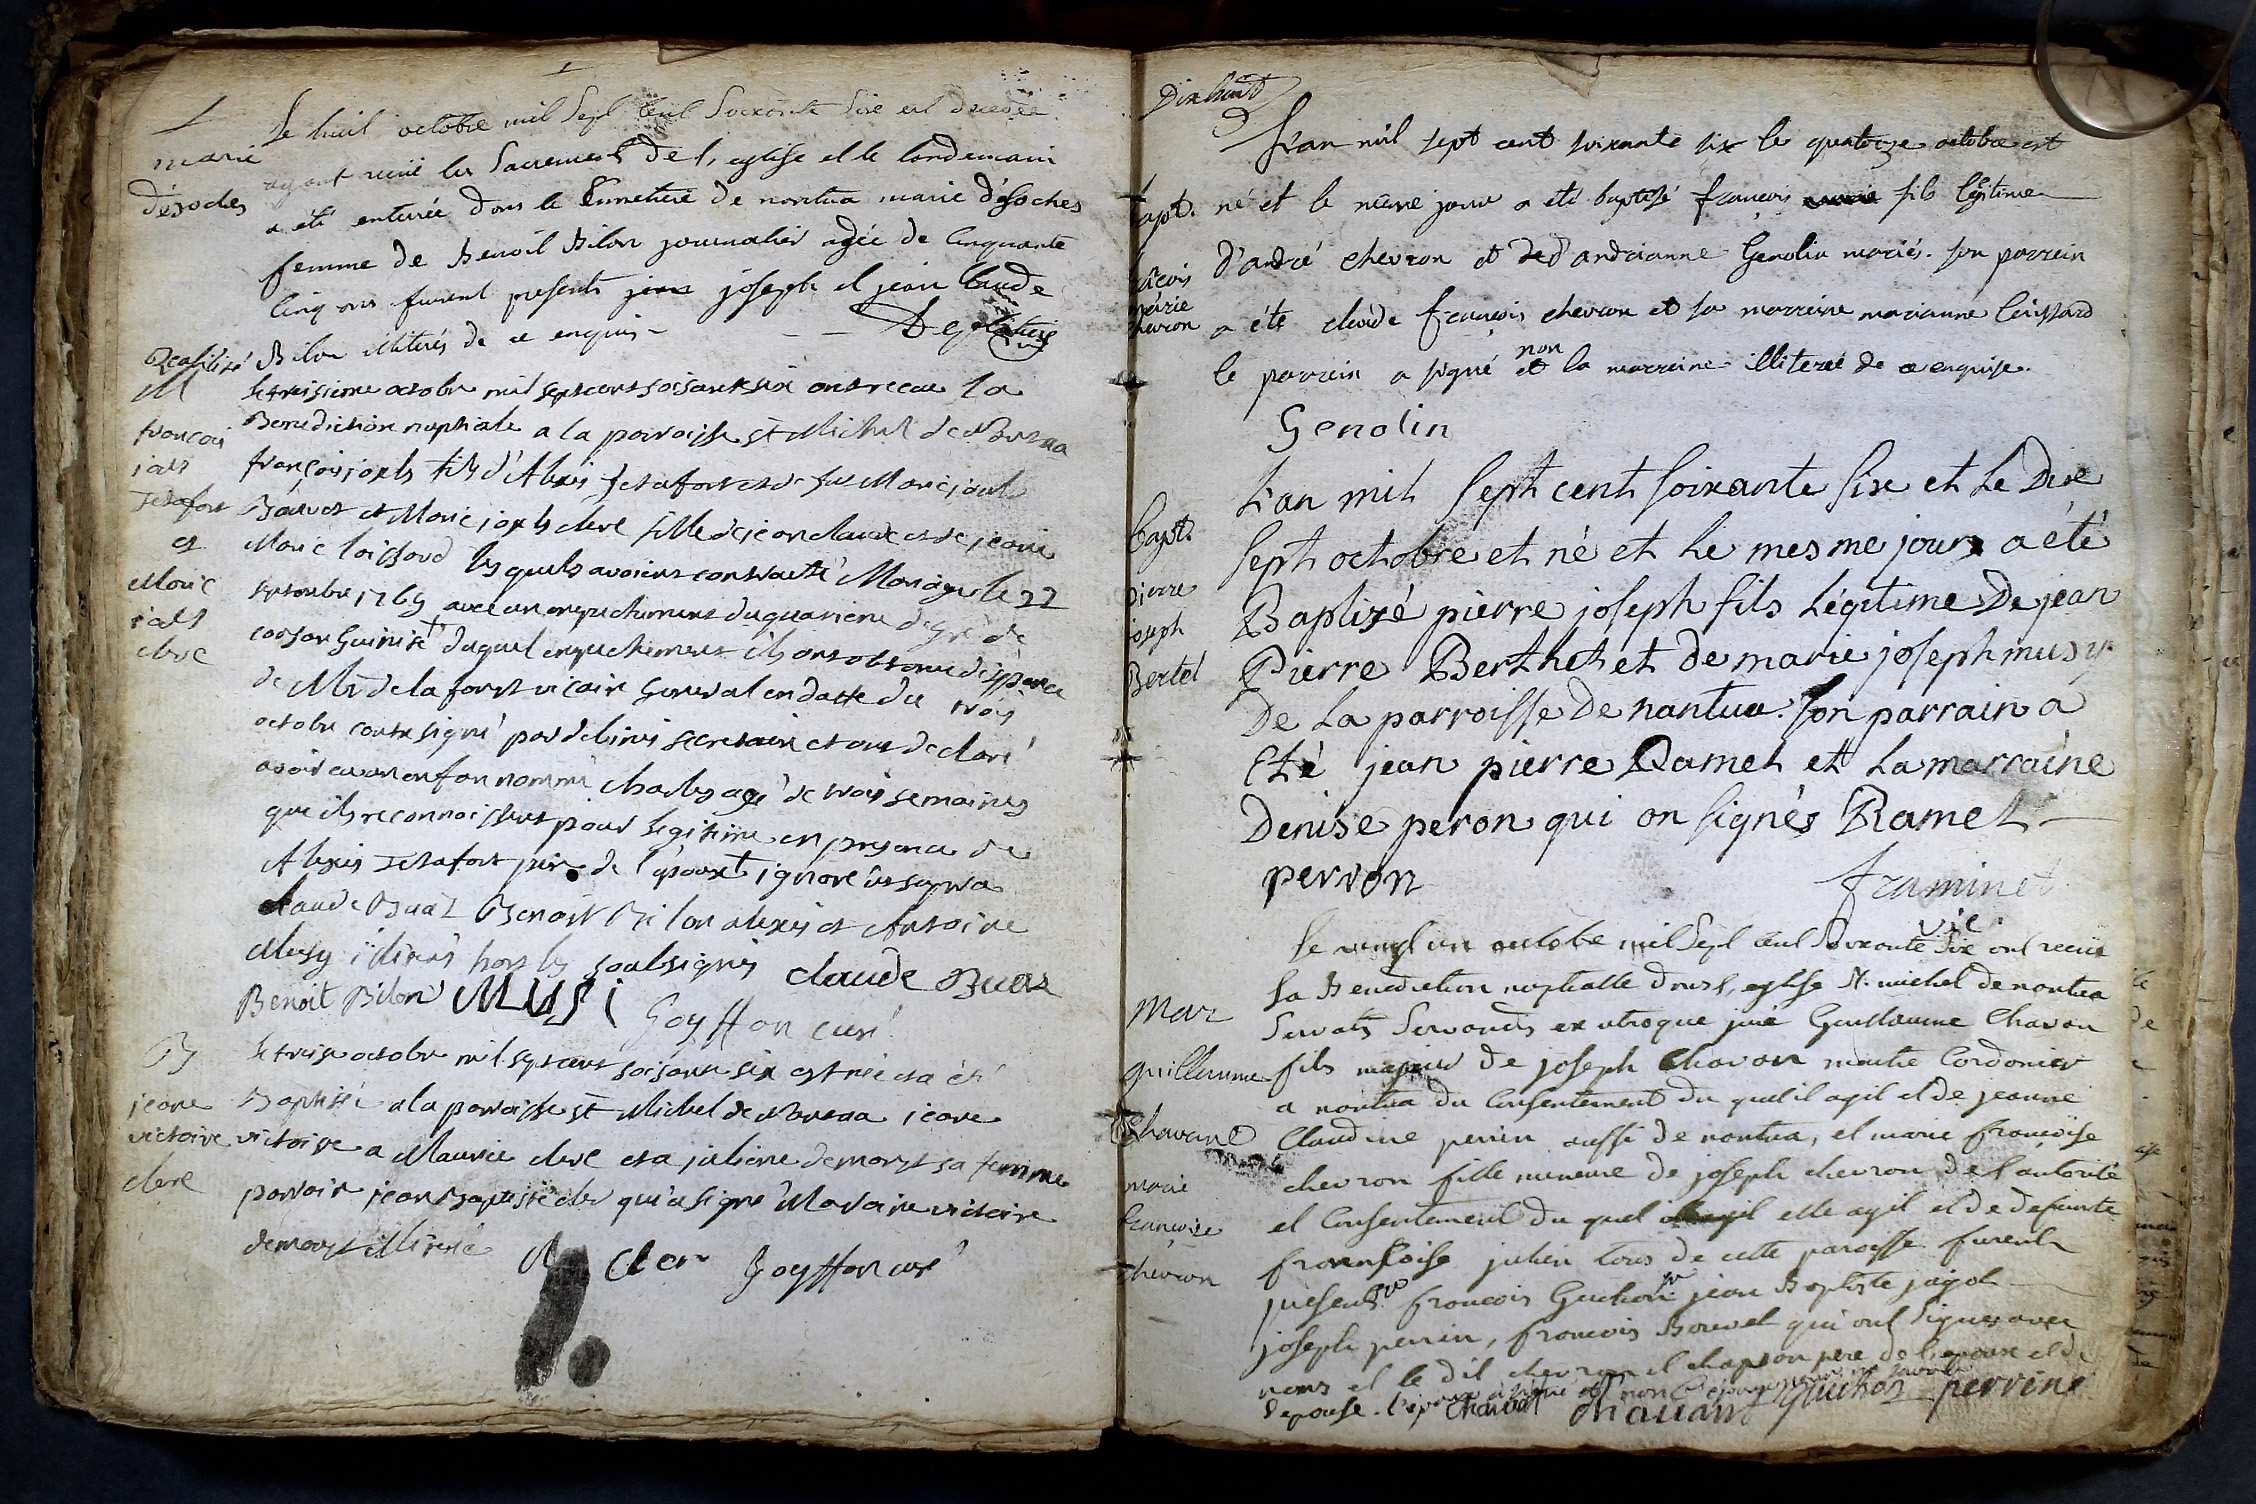 marie
désoches
Le huit octobre mil Sept Cent Soixante Six est decedée
ayant reciu les Sacrements de l, eglise et le landemain
a été enterrée dans le Cimetiere de nantua marie d'ésoches
femme de Benoit Bilon journalier agée de Cinquante
Cinq ans furent presents joseph et jean Claude
Bilon illiterés de ce enquis
Reabilité
M
françois
jals
et
Marie
jals
clerc
le treisieme octobre mil septcent soisante six ont receu la
Benediction nuptiale a la paroisse St Michel de Nantua
françois joseph fils d'Alexis et de feu Marie joseph
et Marie joseph clerc fille de jean claude et de jeanne
Marie loissard lesquels avoient contracté Mariage le 22
septembre 1765 avec un empechement du quatrieme degré de
consanguinité duquel empechement ils ont obtenu dispance
de Mr de la forest vicaire General en datte du trois
octobre contresigné par secretaire et ont declaré
avoir eu un enfan nommé charles agé de trois semaines
que ils reconnoissent pour legitime en presence de
Alexis pere de l'epoux ignore
claude Buaz Benoit Bilon alexis et Antoine
Musy iliterés hors les soubsignés claude Buaz
Benoit Bilon MUSi
Goyffon curé
B
jeane
victoire
clerc
le treise octobre mil septcent soisante six est née et a été
Baptisée a la paroisse St Michel de Nantua jeane
victoire a Maurice clerc et a juliene demorest sa femme
parrain jean Baptiste cler qui a signé Maraine victoire
demorest illiteré
Cler Goyffon curé
Dixhuit
Bapt.
françois
marie
chevron
L'an mil sept cent soixante six le quatorze octobre est
né et le meme jour a été baptisé françois fils légitime
d'andré chevron et de d'andrianne Genolin mariés. son parrein
a été claude françois chevron et sa marreine marianne loissard
le parrein a signé non et la marreine illiterée de ce enquise.
Genolin
Bapt.
pierre
joseph
Bertet
L'an mil Sept cent soixante Six et Le Dixe
Sept octobre et né et Le mesme jour a été
Baptizé pierre joseph fils Légitime De jean
Pierre Berthet et de marie joseph musy
De La parroisse De nantua. son parrain a
Eté jean pierre Ramel et La marraine
Denise peron qui on signés Ramel
perron
framinet
vic.
Mar
guillaume
Chavant
marie
françoise
chevron
Le vingt un octobre mil Sept Cent Soixante Six ont reciu
La Benediction nuptialle dans l, eglise St. michel de nantua
Servatis Servandis ex utroque jure Guillaume Chavan
fils majeur de joseph Chavan maitre Cordonier
a nantua du Consentement du quel il agit et de jeanne
Claudine perrin aussi de nantua, et marie françoise
chevron fille mineure de joseph chevron de l'autorité
et Consentement du quel elle agit et de defunte
françoise julien tous de cette paroisse furent
presents françois Guichon jean Baptiste jagot
joseph perrin, françois Bouvet qui ont Signés avec
nous et le dit chevron et chavan pere de l'epoux et de
l'epouse. l'epoux a signé et non l'epouse
Chavan chauan guichon perrin